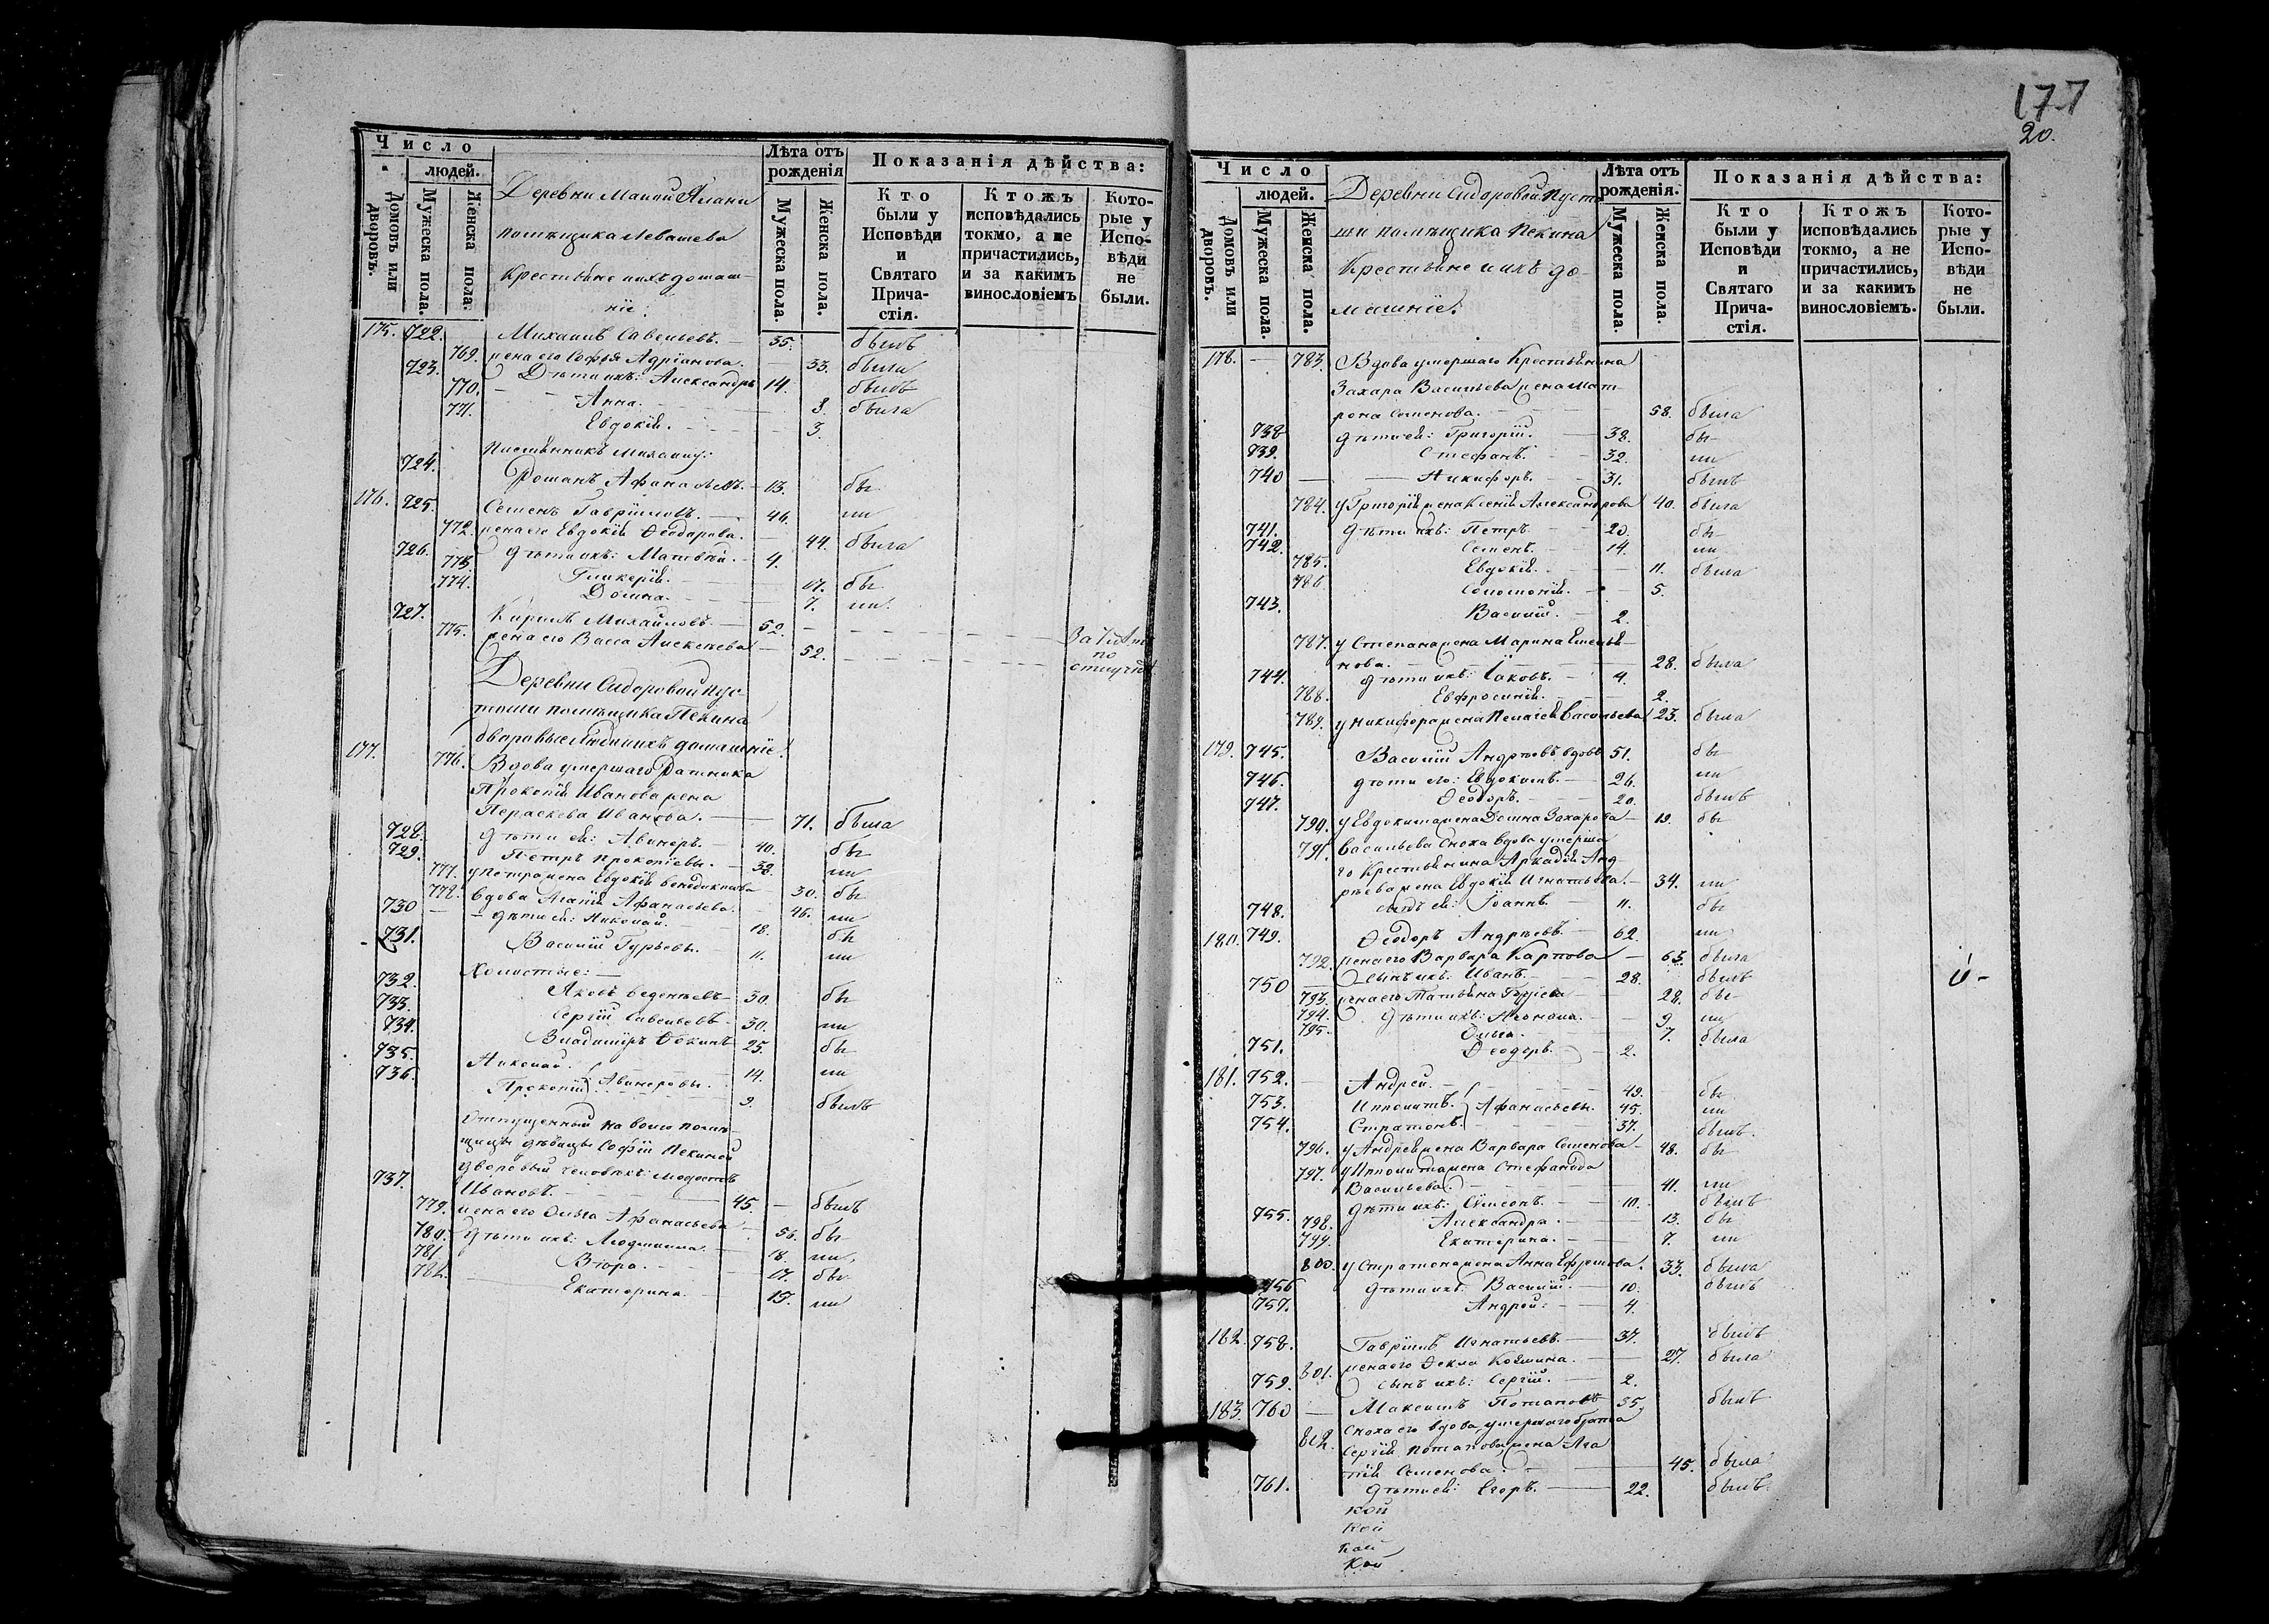 177
20.
Число
людей.
Домовъ или дворовъ.
Мужеска пола.
Женска пола.
Деревни Малой
помѣщика Левашева
Крестьяне и ихъ домаш-
ніе:
Лѣта отъ рожденія
Мужеска пола.
Женска пола.
Показанія дѣйства:
Кто были у Исповѣди и Святаго Прича- стія.
Ктожъ исповѣдались токмо, а не причастились, и за какимъ винословіемъ
Кото- рые у Испо- вѣди не были.
175. 722. Михаилъ Савельевъ. 35. былъ
769. жена его Софья Адріанова. 33. была
723. Дѣти ихъ: Александръ 14. былъ
770. Анна. 8. была
771. Евдокія. 3.
724. Романъ Афанасьевъ. 13. бы
176. 725. Семенъ Гавріиловъ. 46. ли
772. жена его Евдокія Ѳеодорова. 44. была
726. Дѣти ихъ: Матвѣй. 4.
773. Гликерія. 17. бы
774. Домна. 7. ли
727. Кирилъ Михайловъ. 52.
775. жена его Васса Алексѣева 52.
по
Деревни Сидоровой Пус-
тоши помѣщика Пекина
дворовые люди и ихъ домашніе:
177. 776. Вдова умершаго Ратника
Прокопія Иванова жена
Параскева Иванова. 71. была
728. Дѣти ея: Авениръ. 40. бы
729. Петръ Прокопіевы. 38. ли
777. у Петра жена Евдокія Венедиктова 30. бы
778. Вдова Агапія Афанасьева. 46. ли
730 Дѣти ея: Николай. 18. бы
731. Василій Гурьевы. 11. ли
Холостые:
732. Яковъ Веденѣевъ 30. бы
733. Сергій Савельевъ 30. ли
734. Владиміръ Ѳокинъ 25. бы
735. Николай. 14. ли
736. Прокопій Авенировы. 9. былъ
Отпущенный на волю помѣ-
щицы дѣвицы Софіи Пекиной
дворовый человѣкъ: Модестъ
737. Ивановъ. 45. былъ
779. жена его Ольга Афанасьева 56. бы
780. Дѣти ихъ: Людмилла. 18. ли
781. Вѣра. 17. бы
782. Екатерина. 15. ли
Число
людей.
Домовъ или дворовъ.
Мужеска пола.
Женска пола.
Деревни Сидоровой Пусто
ши помѣщика Пекина
Крестьяне и ихъ до-
машніе:
Лѣта отъ рожденія.
Мужеска пола.
Женска пола.
Показанія дѣйства:
Кто были у Исповѣди и Святаго Прича- стія.
Ктожъ исповѣдались токмо, а не причастились, и за какимъ винословіемъ.
Кото- рые у Испо- вѣди не были.
178. 783. Вдова умершаго Крестьянина
Захара Васильева жена Мат-
рона Семенова. 58. была
738 Дѣти ея: Григорій. 38. бы
739. Стефанъ. 32. ли
740 Никифоръ. 31. былъ
784. у Григорія жена Ксенія Александрова 40. была
741. Дѣти ихъ: Петръ 20. бы
742. Семенъ. 14. ли
785. Евдокія. 11. была
786 Соломонія. 5.
743. Василій. 2.
787. у Степана жена Марина Емелья-
нова. 28. была
744. Дѣти ихъ: Іаковъ. 4.
788. Евфросинія. 2.
789. у Никифора жена Пелагея Васильева 23. была
179. 745. Василій Андреевъ вдовъ 51. бы
746. Дѣти его: Евдокимъ. 26. ли
747. Ѳеодоръ. 20. былъ
790. у Евдокима жена Домна Захарова 19. бы
791. Васильева Сноха вдова умерша
го Крестьянина Аркадія Анд-
реева жена Евдокія Игнатьева. 34. ли
748. сынъ ея: Іоаннъ. 11. бы
180. 749. Ѳеодоръ Андреевъ. 62. ли
792. жена его Варвара Карпова 63. была
750 Сынъ ихъ: Иванъ. 28. былъ
793. жена его Татьяна Гурьева 28. бы
794. Дѣти ихъ: 9 ли
795. Ольга. 7. была
751. Ѳеодоръ. 2.
181. 752. Андрей. 49. бы
753. Ипполитъ. Афанасьевы. 45. ли
754. Стратонъ. 37. былъ.
796. у Андрея жена Варвара Семенова 48. бы
797. у Ипполита жена Стефанида
Васильева. 41. ли
755. Дѣти ихъ: Сѵмеонъ. 10. былъ
798. Александра. 13. бы
799. Екатерина. 7. ли
800. у Стратона жена Анна Ефремова. 33. была
756 Дѣти ихъ: Василій. 10. былъ
757. Андрей. 4.
182. 758. Гавріилъ Игнатьевъ. 37. былъ
801. жена его Ѳекла Козмина. 27. была
759. Сынъ ихъ: Сергій. 2.
183. 760 Максимъ Потаповъ 35. былъ
802. Сноха его вдова умершаго брата
Сергія Потапова жена Ага
пія Семенова. 45. была
761. Дѣти ея: Егоръ. 22. былъ
кой
кой
кой
кой